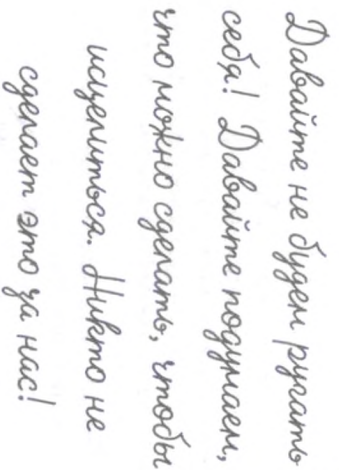 Давайте не будем ругать
себя! Давайте подумаем,
что можно сделать, чтобы
исцелиться. Никто не
сделает это за нас!